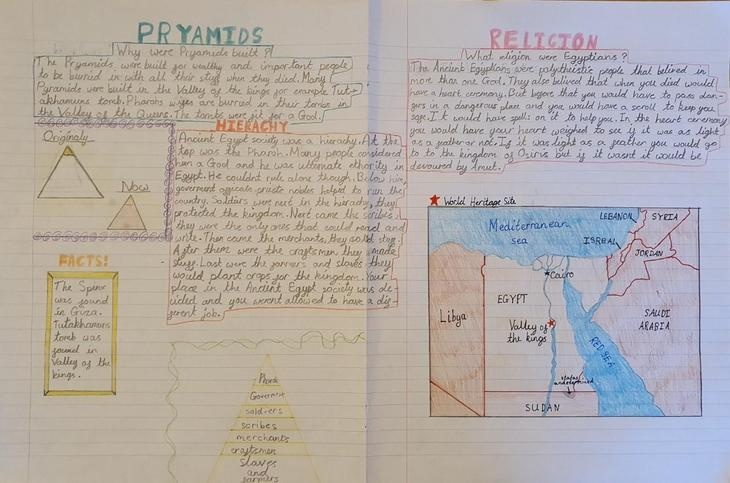 PRYAMIDS
Why were Pryamids built?
The Pryamids were built for wealthy and important people
to be burried in with all their stuff when they died. Many
Pyramids were built in the Valley of the kings for example Tut-
akhamuns tomb. Pharohs wifes are burried in their tombs in
the Valley of the Queens. The tombs were fit for a God.
Originaly
Now
FACTS!
The Spinx
was found
in Griza.
Tutakhamuns
tomb was
found in
Valley of the
kings.
HIERACHY
Ancient Egypt society was a hierachy. At the
top was the Pharoh. Many people considered
him a God and he was ultimate athority in
Egypt. He couldnt rule alone though. Below him,
goverment officals, priests nobles helped to run the
country. Soldiurs were next in the hierachy, they
protected the kingdom. Next came the scribes
they were the only ones that could read and
write. Then came the merchants, they sold stuff.
After them were the craftsmen, they made
stuff. Last were the farmers and slaves they
would plant crops for the kingdom. Your
place in the Ancient Egypt society was de-
cided and you werent allowed to have a dif-
ferent job.
Pharoh
Goverment
soldiers
scribes
merchants
craftsmen
slaves
and
farmers
RELIGION
What eligion were Egyptians?
The Ancient Egyptians were polytheistic people that belived in
more than one God. They also belived that when you died would
have a heart ceremony. But before that you would have to pass dan-
gers in a dangerous place and you would have a scroll to keep you
safe. It would have spells on it to help you. In the heart ceremony
you would have your heart weighed to see if it was as light
as a feather or not. If it was light as a feather you would go
to to the kingdom of Osiris but if it wasnt it would be
devoured by Amut.
World Heritage Site
Mediterranean
sea
LEBANON
SYRIA
ISREAL
JORDAN
Cairo
EGYPT
Libya
Valley of
the kings
RED SEA
SAUDI
ARABIA
SUDAN